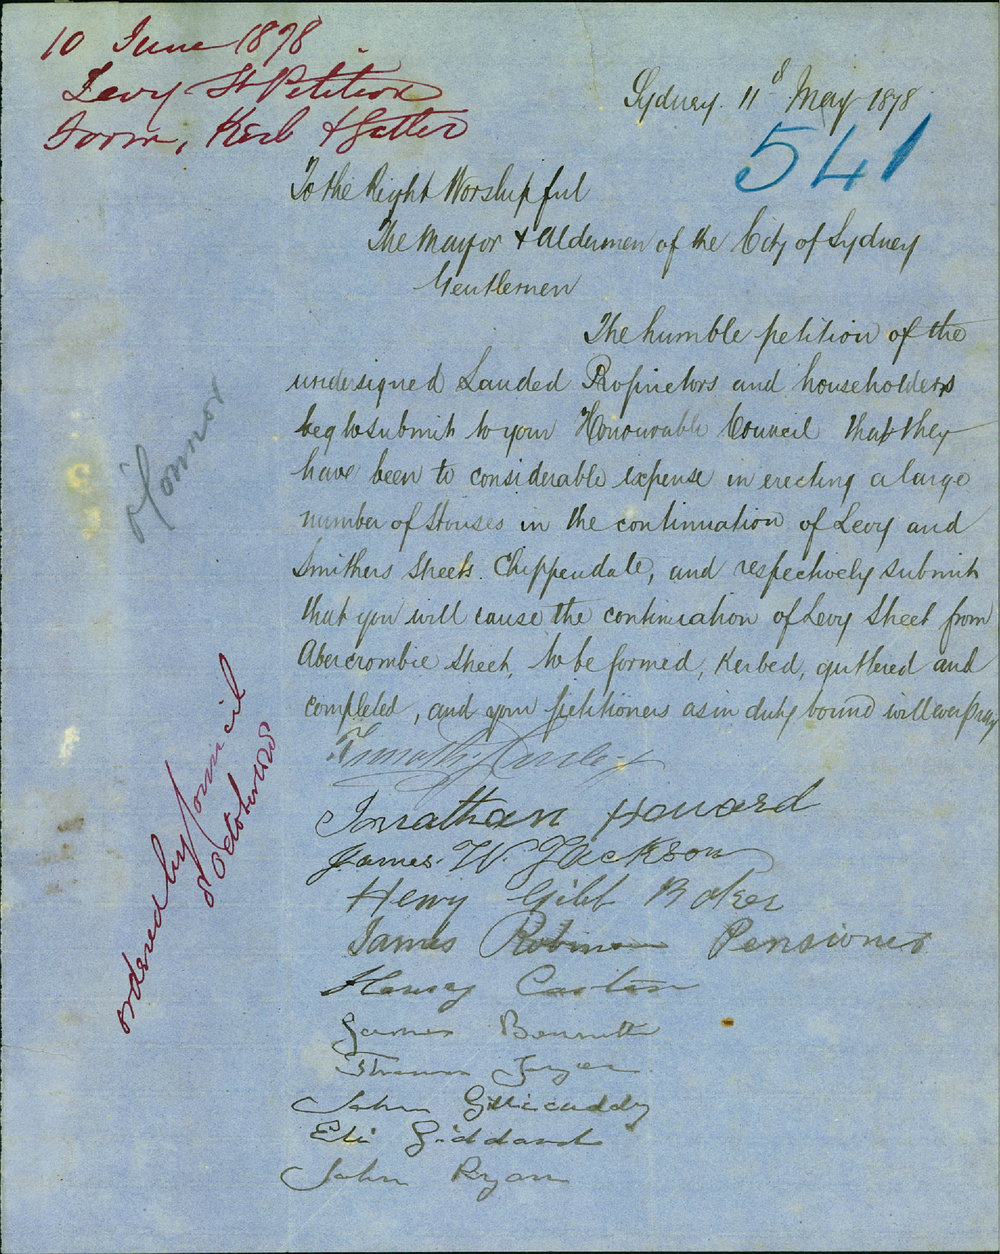 10 June 1878
Levy St Petition
Form, Kerb & Gutter
Sydney. 11th May 1878
541
To the Right Worshipful
The Mayor & Aldermen of the City of Sydney
Gentlemen
The humble petition of the
undersigned Landed Proprietors and householders
beg to submit to your Honourable Council that they
have been to considerable expense in erecting a large
number of Houses in the continuation of Levy and
Smithers Streets. Chippendale, and respectively submit
that you will cause the continuation of Levy Street from
Abercrombie Street, to be formed, Kerbed, guttered and
completed, and your petitioners as in duty bound will ever pray
Timothy
Jonathan Howard
James. W. Jackson
Henry Gibb Baker
James Robinson Pensioner
Harvey
James Bennett
Thomas
John Gillicuddy
Eli Giddard
John Ryan
ordered by Council
8 October 1878